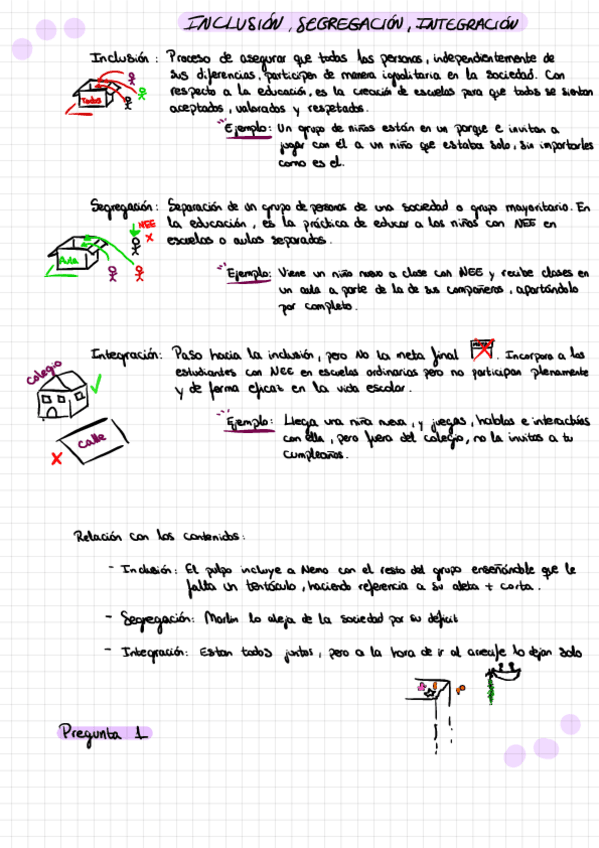 INCLUSIÓN, SEGREGACIÓN, INTEGRACIÓN
Inclusión : Proceso de asegurar que todas las personas, independientemente de
sus diferencias, participen de manera igualitaria en la sociedad. Con
respecto a la educación, es la creación de escuelas para que todos se sientan
aceptados, valorados y respetados.
Todos
Ejemplo: Un grupo de niños están en un parque e invitan a
jugar con él a un niño que estaba solo, sin importarles
como es el.
Segregación: Separación de un grupo de personas de una sociedad o grupo mayoritario. En
la educación, es la práctica de educar a los niños con NEE en
escuelas o aulas separadas.
NEE
Aula
Ejemplo: Viene un niño nuevo a clase con NEE y recibe clases en
un aula a parte de la de sus compañeros, apartándolo
por completo.
Integración: Paso hacia la inclusión, pero No la meta final . Incorpora a los
estudiantes con NEE en escuelas ordinarias pero no participan plenamente
y de forma eficaz en la vida escolar.
colegio
calle
Ejemplo: Llega una niña nueva, y juegas, hablas e interactúas
con ella, pero fuera del colegio, no la invitas a tu
cumpleaños.
Relación con los contenidos:
- Inclusión: El pulpo incluye a Nemo con el resto del grupo enseñándole que le
falta un tentáculo, haciendo referencia a su aleta + corta.
- Segregación: Marlin lo aleja de la sociedad por su déficit
- Integración: Estan todos juntos, pero a la hora de ir al arrecife lo dejan solo
Pregunta 1